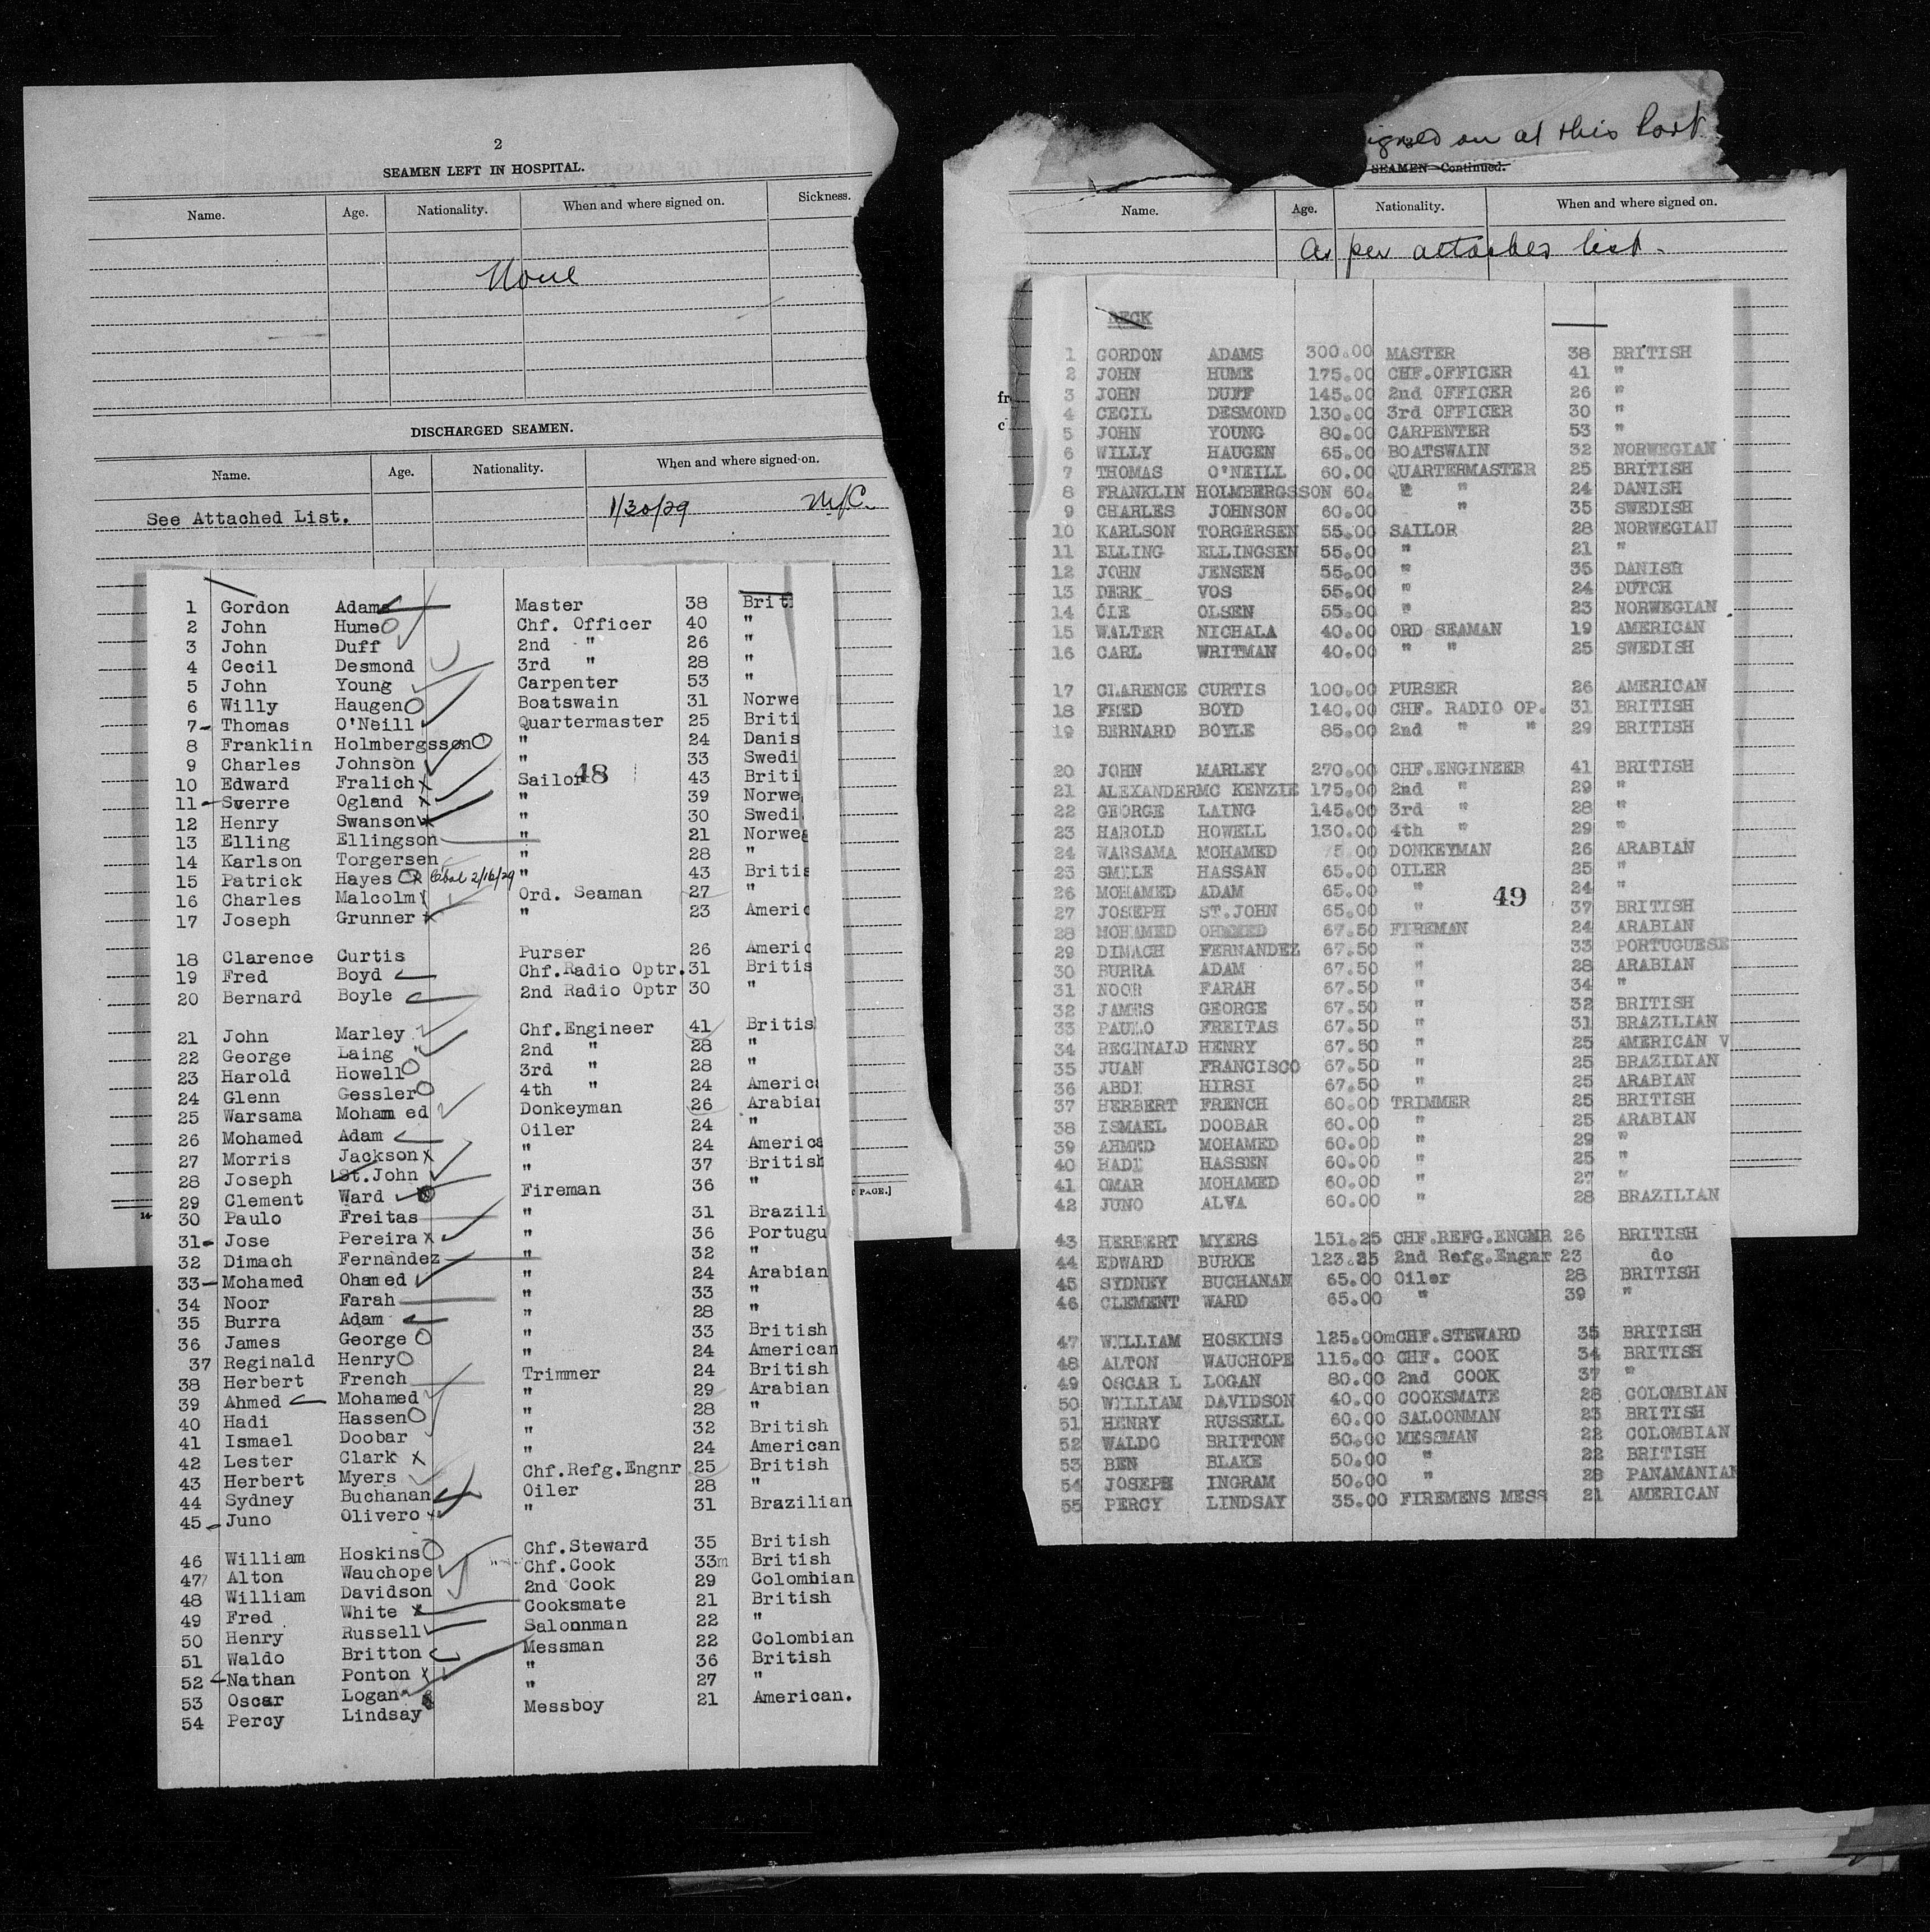 2
SEAMEN LEFT IN HOSPITAL.
Name. Age. Nationality. When and where signed on. Sickness.
None
DISCHARGED SEAMEN.
Name. Age. Nationality. When and where signed on.
See Attached List. 1/30/29 M/C.
1 Gordon Adams Master 38 Briti
2 John Hume Chf. Officer 40 "
3 John Duff 2nd " 26 "
4 Cecil Desmond 3rd " 28 "
5 John Young Carpenter 53 "
6 Willy Haugen Boatswain 31 Norwe
7 Thomas O'Neill Quartermaster 25 Briti
8 Franklin Holmbergsson " 24 Danis
9 Charles Johnson " 33 Swedi
10 Edward Fralich Sailor 43 Briti
48
11 Sverre Ogland " 39 Norwe
12 Henry Swanson " 30 Swedi
13 Elling Ellingson " 21 Norweg
14 Karlson Torgersen " 28 "
15 Patrick Hayes 2/16/29 " 43 Britis
16 Charles Malcolm Ord. Seaman 27 "
17 Joseph Grunner " 23 Americ
18 Clarence Curtis Purser 26 Americ
19 Fred Boyd Chf.Radio Optr. 31 Britis
20 Bernard Boyle 2nd Radio Optr 30 "
21 John Marley Chf.Engineer 41 Britis
22 George Laing 2nd " 28 "
23 Harold Howell 3rd " 28 "
24 Glenn Gessler 4th " 24 America
25 Warsama Moham ed Donkeyman 26 Arabian
26 Mohamed Adam Oiler 24 "
27 Morris Jackson " 24 America
28 Joseph St.John " 37 British
29 Clement Ward Fireman 36 "
30 Paulo Freitas " 31 Brazili
31 Jose Pereira " 36 Portugu
32 Dimach Fernandez " 32 "
33 Mohamed Ohamed " 24 Arabian
34 Noor Farah " 33 "
35 Burra Adam " 28 "
36 James George " 33 British
37 Reginald Henry " 24 American
38 Herbert French Trimmer 24 British
39 Ahmed Mohamed " 29 Arabian
40 Hadi Hassen " 28 "
41 Ismael Doobar " 32 British
42 Lester Clark " 24 American
43 Herbert Myers Chf.Refg.Engnr 25 British
44 Sydney Buchanan Oiler 28 "
45 Juno Olivero " 31 Brazilian
46 William Hoskins Chf.Steward 35 British
47 Alton Wauchope Chf.Cook 33m British
48 William Davidson 2nd Cook 29 Colombian
49 Fred White Cooksmate 21 British
50 Henry Russell Saloonman 22 "
51 Waldo Britton Messman 22 Colombian
52 Nathan Ponton " 36 British
53 Oscar Logan " 27 "
54 Percy Lindsay Messboy 21 American.
PAGE.]
14-
igned on at this Port
SEAMEN—Continued.
Name. Age. Nationality. When and where signed on.
As per attached list.
fr
c
DECK
1 GORDON ADAMS 300.00 MASTER 38 BRITISH
2 JOHN HUME 175.00 CHF.OFFICER 41 "
3 JOHN DUFF 145.00 2nd OFFICER 26 "
4 CECIL DESMOND 130.00 3rd OFFICER 30 "
5 JOHN YOUNG 80.00 CARPENTER 53 "
6 WILLY HAUGEN 65.00 BOATSWAIN 32 NORWEGIAN
7 THOMAS O'NEILL 60.00 QUARTERMASTER 25 BRITISH
8 FRANKLIN HOLMBERGSSON 60. " " 24 DANISH
9 CHARLES JOHNSON 60.00 " 35 SWEDISH
10 KARLSON TORGERSEN 55.00 SAILOR 28 NORWEGIAN
11 ELLING ELLINGSEN 55.00 " 21 "
12 JOHN JENSEN 55.00 " 35 DANISH
13 DERK VOS 55.00 " 24 DUTCH
14 OLE OLSEN 55.00 " 23 NORWEGIAN
15 WALTER NICHALA 40.00 ORD SEAMAN 19 AMERICAN
16 CARL WRITMAN 40.00 " " 25 SWEDISH
17 CLARENCE CURTIS 100.00 PURSER 26 AMERICAN
18 FRED BOYD 140.00 CHF. RADIO OP. 31 BRITISH
19 BERNARD BOYLE 85.00 2nd " " 29 BRITISH
20 JOHN MARLEY 270.00 CHF.ENGINEER 41 BRITISH
21 ALEXANDERMC KENZIE 175.00 2nd " 29 "
22 GEORGE LAING 145.00 3rd " 28 "
23 HAROLD HOWELL 130.00 4th " 29 "
24 WARSAMA MOHAMED 75.00 DONKEYMAN 26 ARABIAN
23 SMILE HASSAN 65.00 OILER 25 "
26 MOHAMED ADAM 65.00 " 24 "
49
27 JOSEPH ST.JOHN 65.00 " 37 BRITISH
28 MOHAMED OHMMED 67.50 FIREMAN 24 ARABIAN
29 DIMACH FERNANDEZ 67.50 " 33 PORTUGUESE
30 BURRA ADAM 67.50 " 28 ARABIAN
31 NOOR FARAH 67.50 " 34 "
32 JAMES GEORGE 67.50 " 32 BRITISH
33 PAULO FREITAS 67.50 " 31 BRAZILIAN
34 REGINALD HENRY 67.50 " 25 AMERICAN V
35 JUAN FRANCISCO 67.50 " 25 BRAZILIAN
36 ABDI HIRSI 67.50 " 25 ARABIAN
37 HERBERT FRENCH 60.00 TRIMMER 25 BRITISH
38 ISMAEL DOOBAR 60.00 " 25 ARABIAN
39 AHMED MOHAMED 60.00 " 29 "
40 HADI HASSEN 60.00 " 25 "
41 OMAR MOHAMED 60.00 " 27 "
42 JUNO ALVA 60.00 " 28 BRAZILIAN
43 HERBERT MYERS 151.25 CHF.REFG.ENGNR 26 BRITISH
44 EDWARD BURKE 123.25 2nd Refg.Engnr 23 do
45 SYDNEY BUCHANAN 65.00 Oiler 28 BRITISH
46 CLEMENT WARD 65.00 " 39 "
47 WILLIAM HOSKINS 125.00mCHF.STEWARD 35 BRITISH
48 ALTON WAUCHOPE 115.00 CHF. COOK 34 BRITISH
49 OSCAR L LOGAN 80.00 2nd COOK 37 "
50 WILLIAM DAVIDSON 40.00 COOKSMATE 28 COLOMBIAN
51 HENRY RUSSELL 60.00 SALOONMAN 23 BRITISH
52 WALDO BRITTON 50.00 MESSMAN 22 COLOMBIAN
53 BEN BLAKE 50.00 " 22 BRITISH
54 JOSEPH INGRAM 50.00 " 28 PANAMANIAN
55 PERCY LINDSAY 35.00 FIREMENS MESS 21 AMERICAN